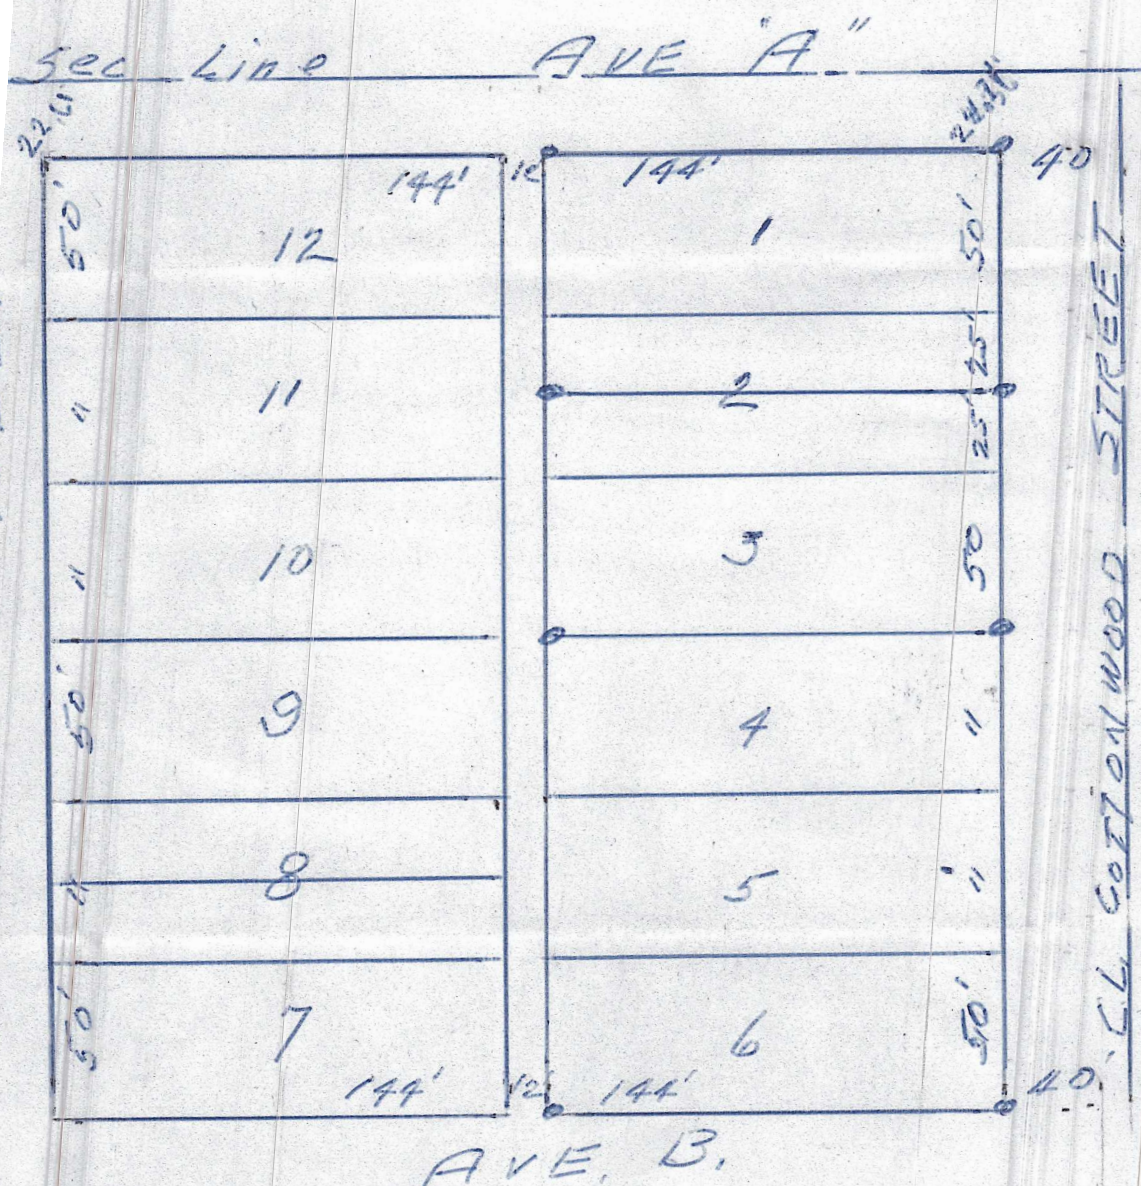 Sec Line AVE "A"
22.6
24.36
144' 12' 144' 40
50' 12 1 50'
25'
" 11 2
25'
" 10 3 50
50' 9 4 "
" 8 5 "
50' 7 6 50'
144' 12' 144' 40
AVE. B.
CL COTTONWOOD STREET